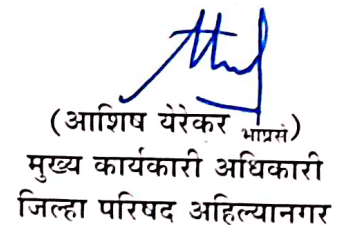 (आशिष येरेकर भाप्रसे)
मुख्य कार्यकारी अधिकारी
जिल्हा परिषद अहिल्यानगर